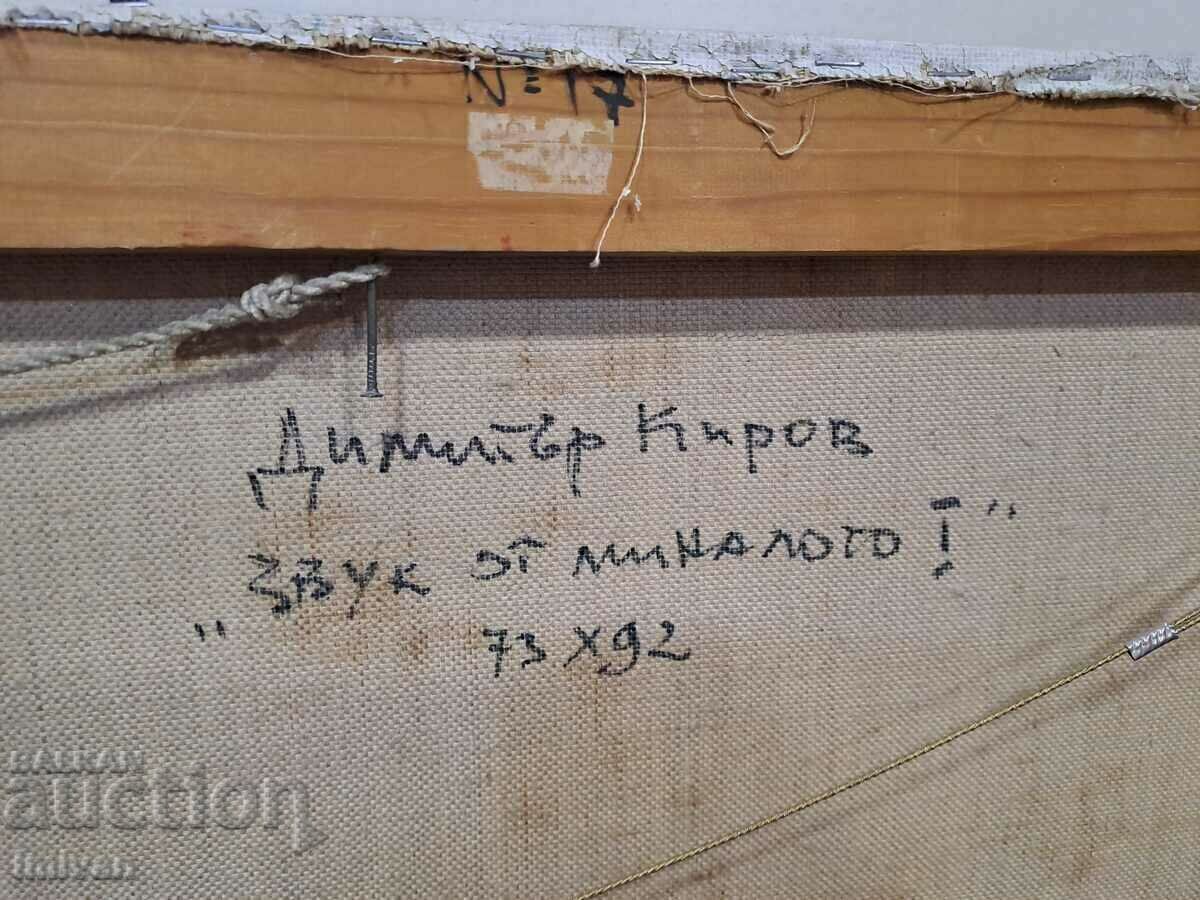 N=17
Димитър Киров
„Звук от миналото I"
73 x 92
BALKAN
auction